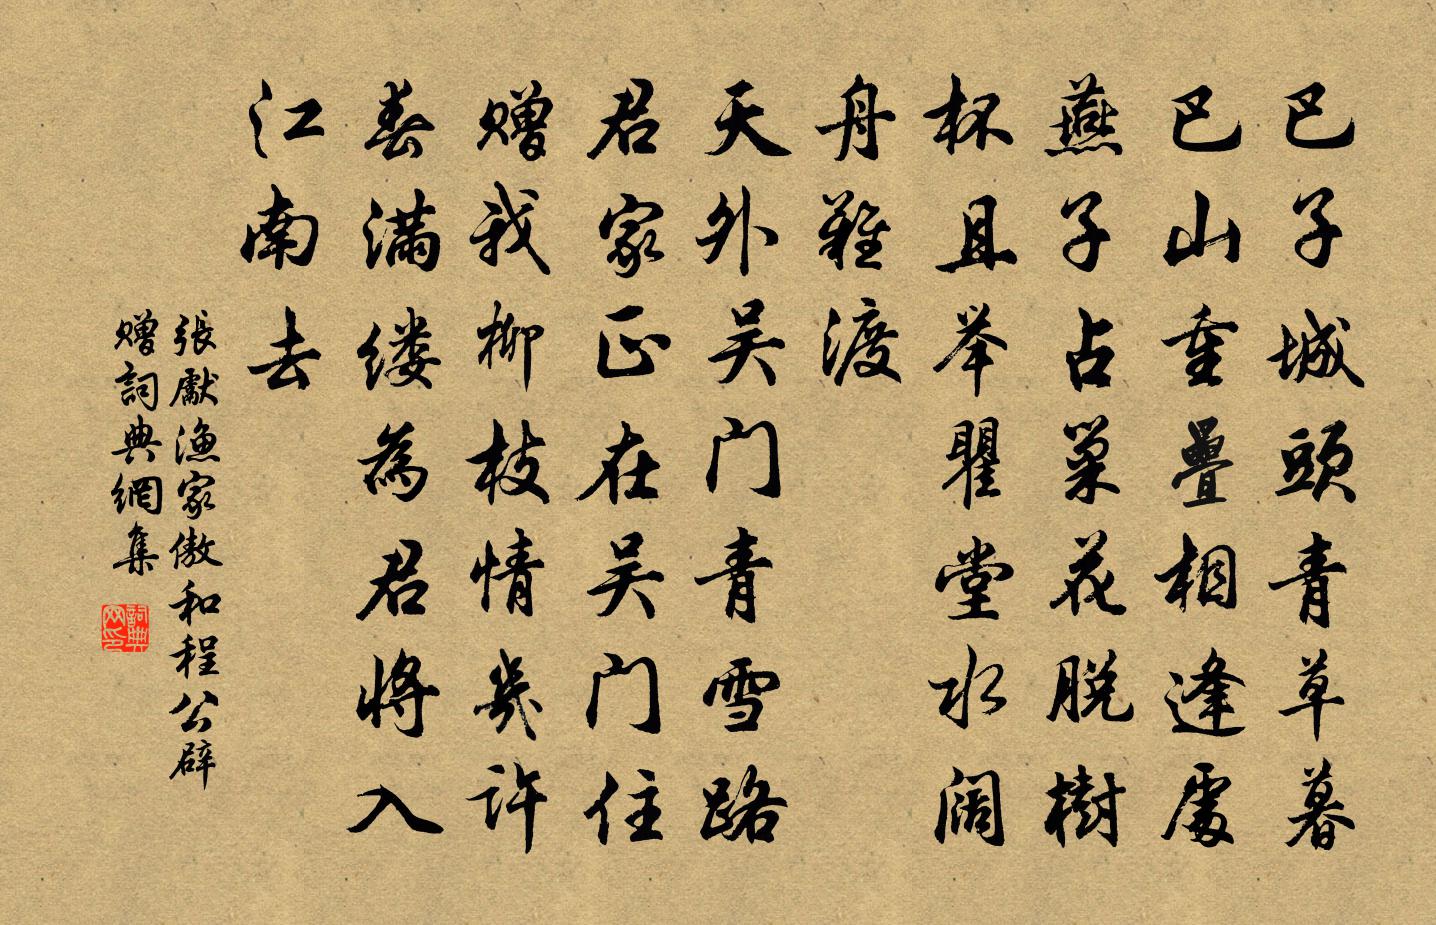 巴子城頭青草暮
巴山重疊相逢處
燕子占巢花脱樹
杯且举瞿堂水阔
舟難渡
天外吴门青雪路
君家正在吴门住
赠我柳枝情幾许
春满缕為君將入
江南去
張獻漁家傲和程公辟
赠詞典網集
詞典网印